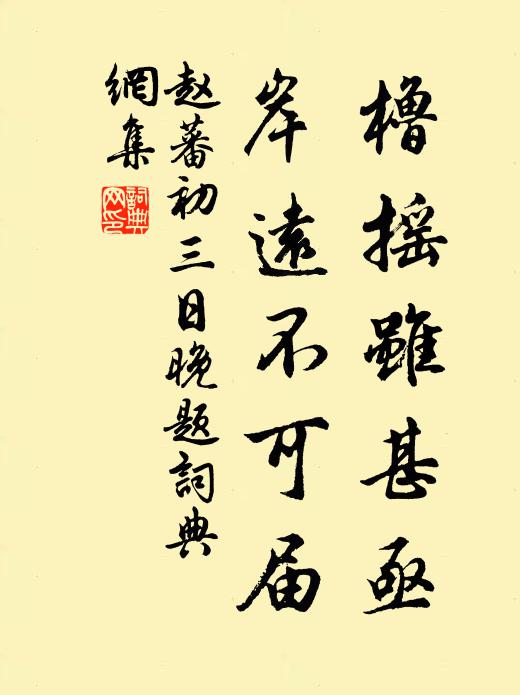 櫓摇雖甚亟
岸遠不可届
赵蕃初三日晚题詞典
網集
詞典
网印